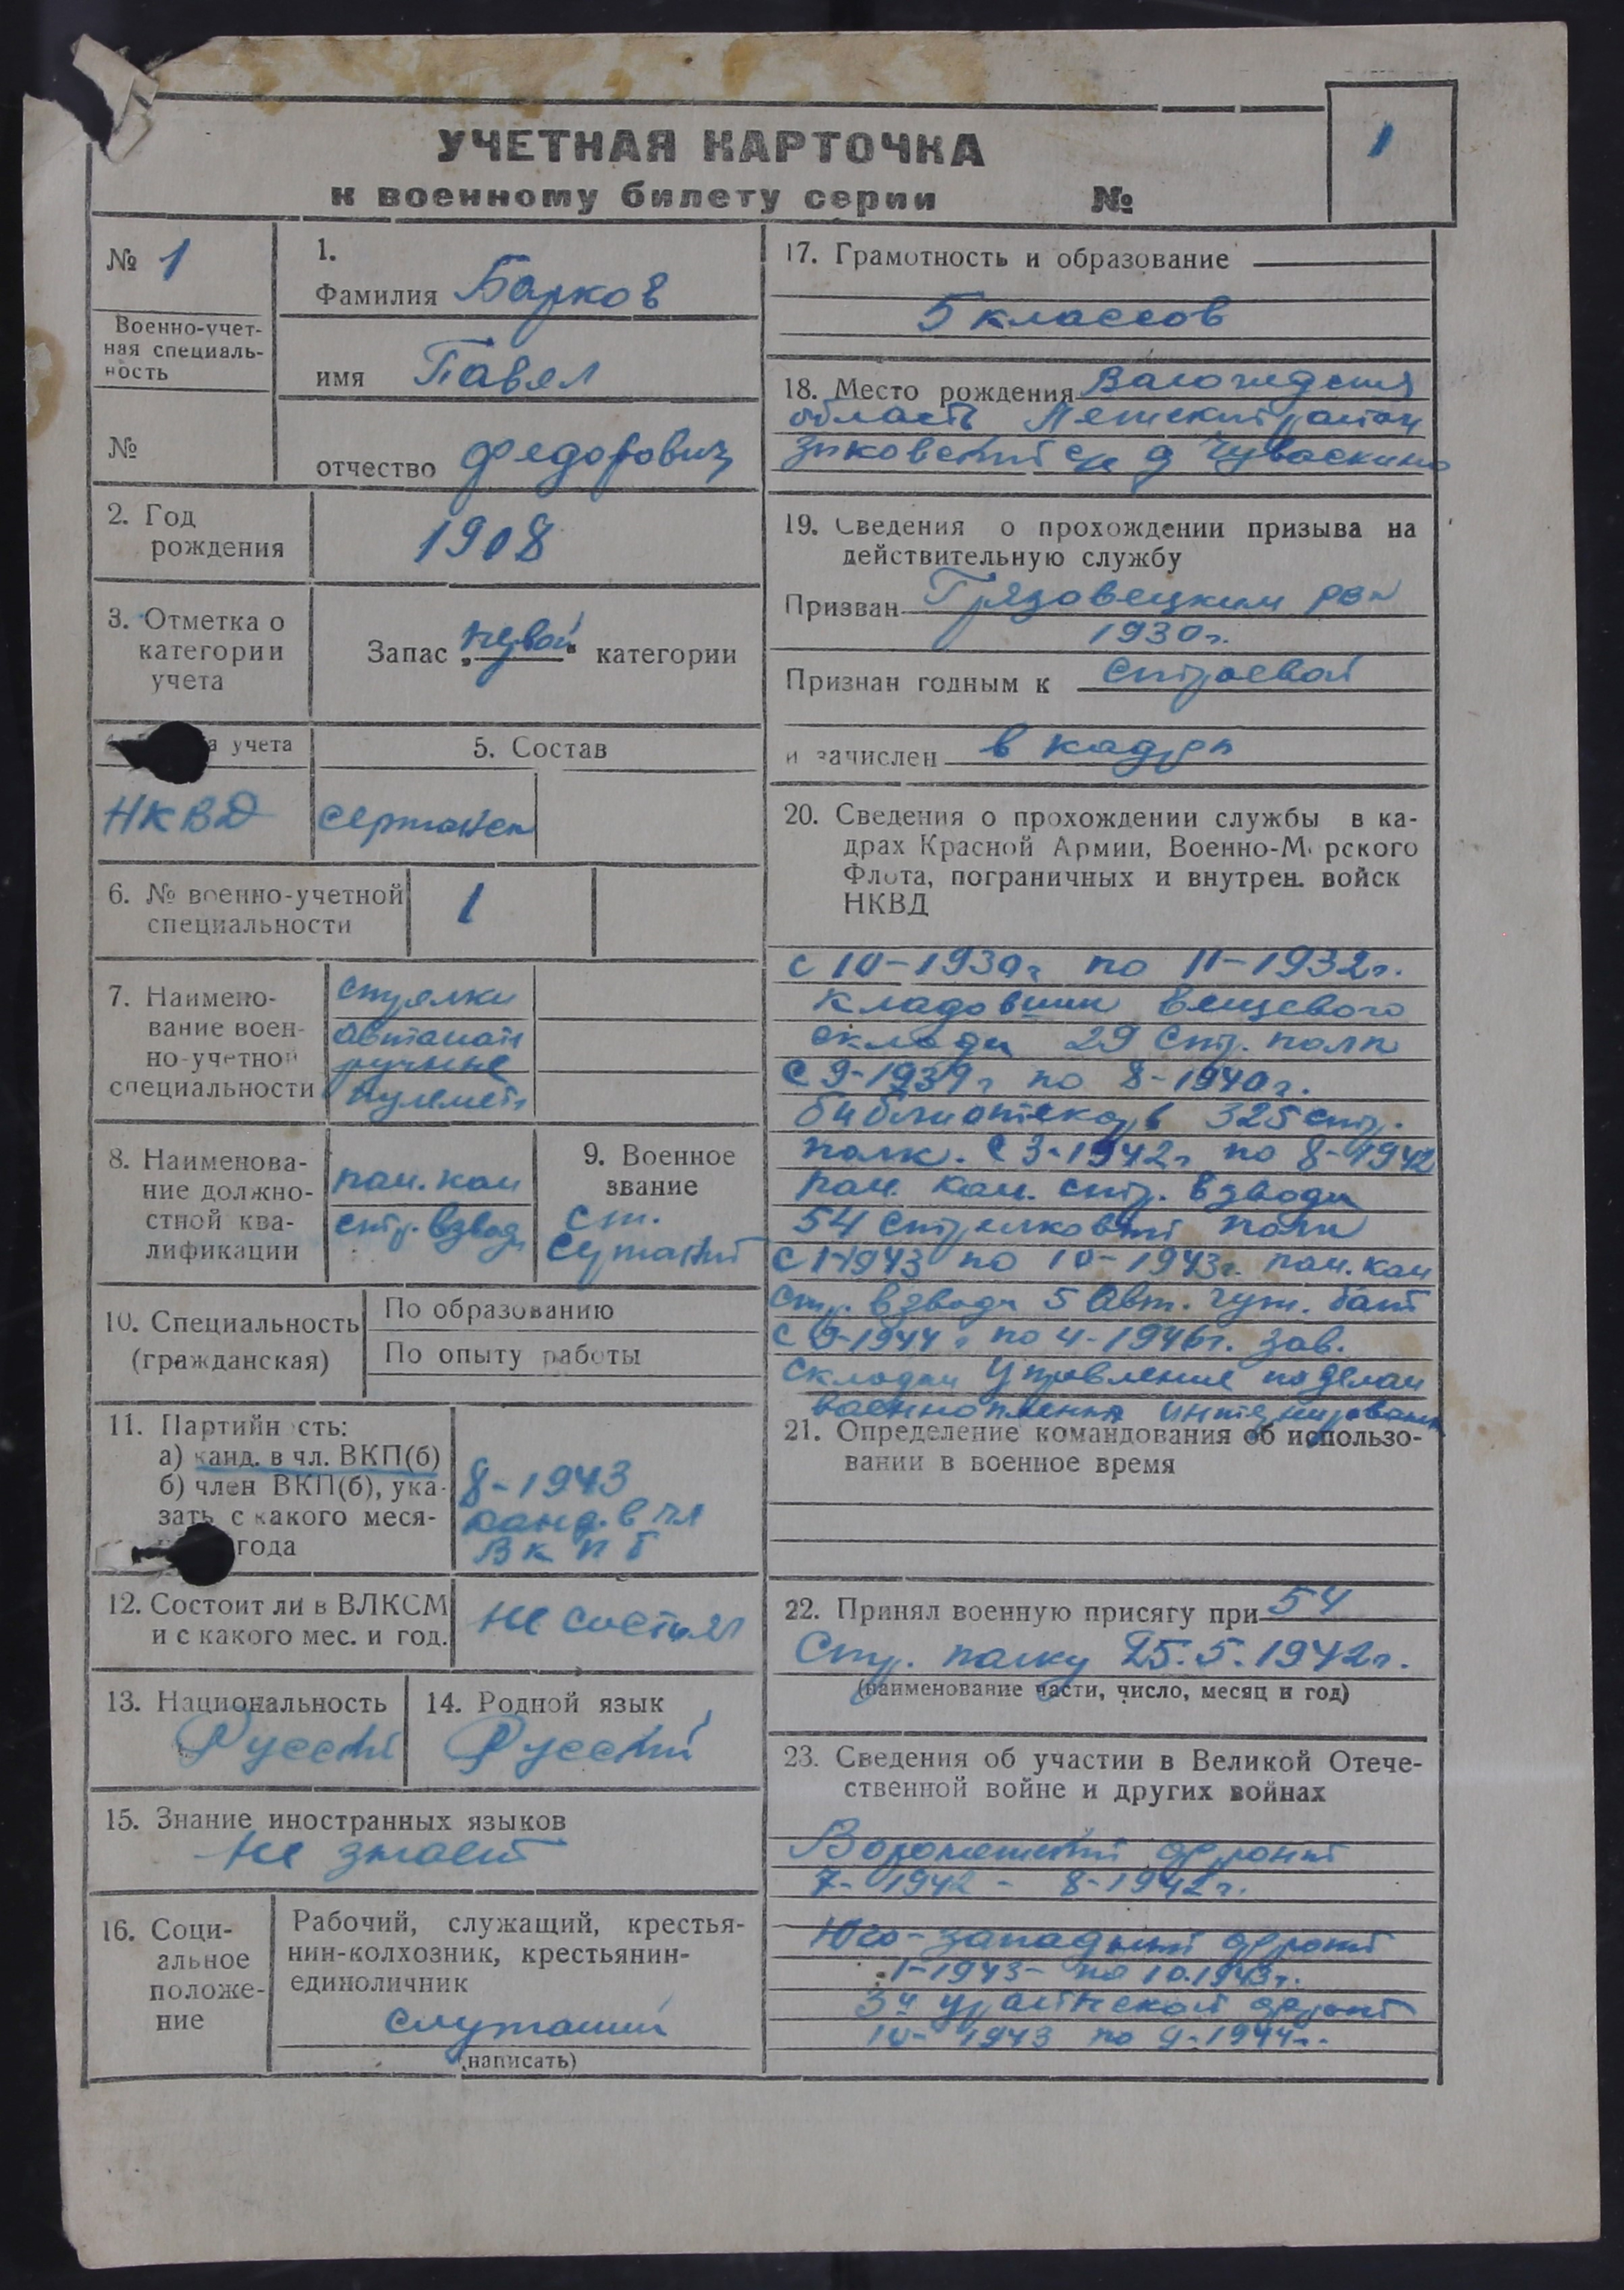 УЧЕТНАЯ КАРТОЧКА
к военному билету серии №
1
№ 1
Военно-учет-
ная специаль-
ность
№
1.
Фамилия Барков
имя Павел
отчество Федорович
2. Год
рождения
1908
3. Отметка о
категории
учета
Запас „первой“ категории
а учета
НКВД
5. Состав
сержанск
6. № военно-учетной
специальности
1
7. Наимено-
вание воен-
но-учетной
специальности
стрелки
автомат
ручные
пулемет
8. Наименова-
ние должно-
стной ква-
лификации
пом. ком
стр. взвод
9. Военное
звание
ст.
10. Специальность
(гражданская)
По образованию
По опыту работы
11. Партийн сть:
а) канд. в чл. ВКП(б)
б) член ВКП(б), ука-
зать с какого меся-
года
8-1943
канд. в чл
ВКПб
12. Состоит ли в ВЛКСМ
и с какого мес. и год.
не состоял
13. Национальность
Русский
14. Родной язык
Русский
15. Знание иностранных языков
не знает
16. Соци-
альное
положе-
ние
Рабочий, служащий, крестья-
нин-колхозник, крестьянин-
единоличник
служащий
(написать)
17. Грамотность и образование
5 классов
18. Место рождения
область район
с/с д
19. Сведения о прохождении призыва на
действительную службу
Призван Грязовецким рвк
1930г.
Признан годным к строевой
и зачислен в кадры
20. Сведения о прохождении службы в ка-
драх Красной Армии, Военно-М рского
Флота, пограничных и внутрен. войск
НКВД
с 10-1930г по 11-1932г.
кладовшик вещевого
склада 29 стр. полк
с 9-1939г по 8-1940г.
библиотекарь 325 стр.
полк. С 3-1942г по 8-1942
пом. ком. стр. взвода
54 стрелковый полк
с 1-1943 по 10-1943г. пом. ком
стр. взвода 5 Авт. бат
с 9-1944г по 4-1946г. зав.
складом Управление по делам
военнопленн
21. Определение командования об использо-
вании в военное время
22. Принял военную присягу при 54
Стр. полку 25.5.1942г.
(наименование части, число, месяц и год)
23. Сведения об участии в Великой Отече-
ственной войне и других войнах
Воронежский фронт
7-1942 - 8-1942г.
Юго-западный фронт
1-1943- по 10.1943г.
3й фронт
10-1943 по 9-1944г.